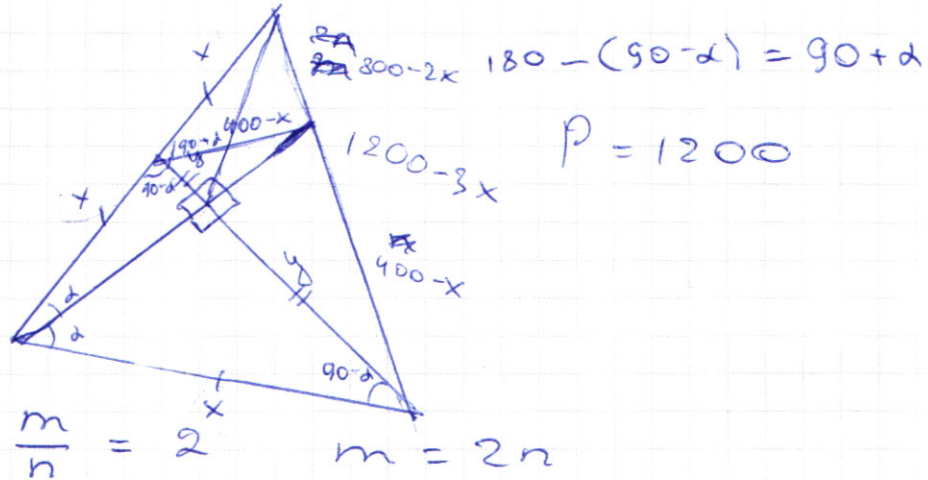 x
800-2x
180-(90-α) = 90+α
90+α
400-x
1200-3x
P = 1200
y
90-α
x
y
400-x
α
α
90-α
x
m/n = 2
m = 2n